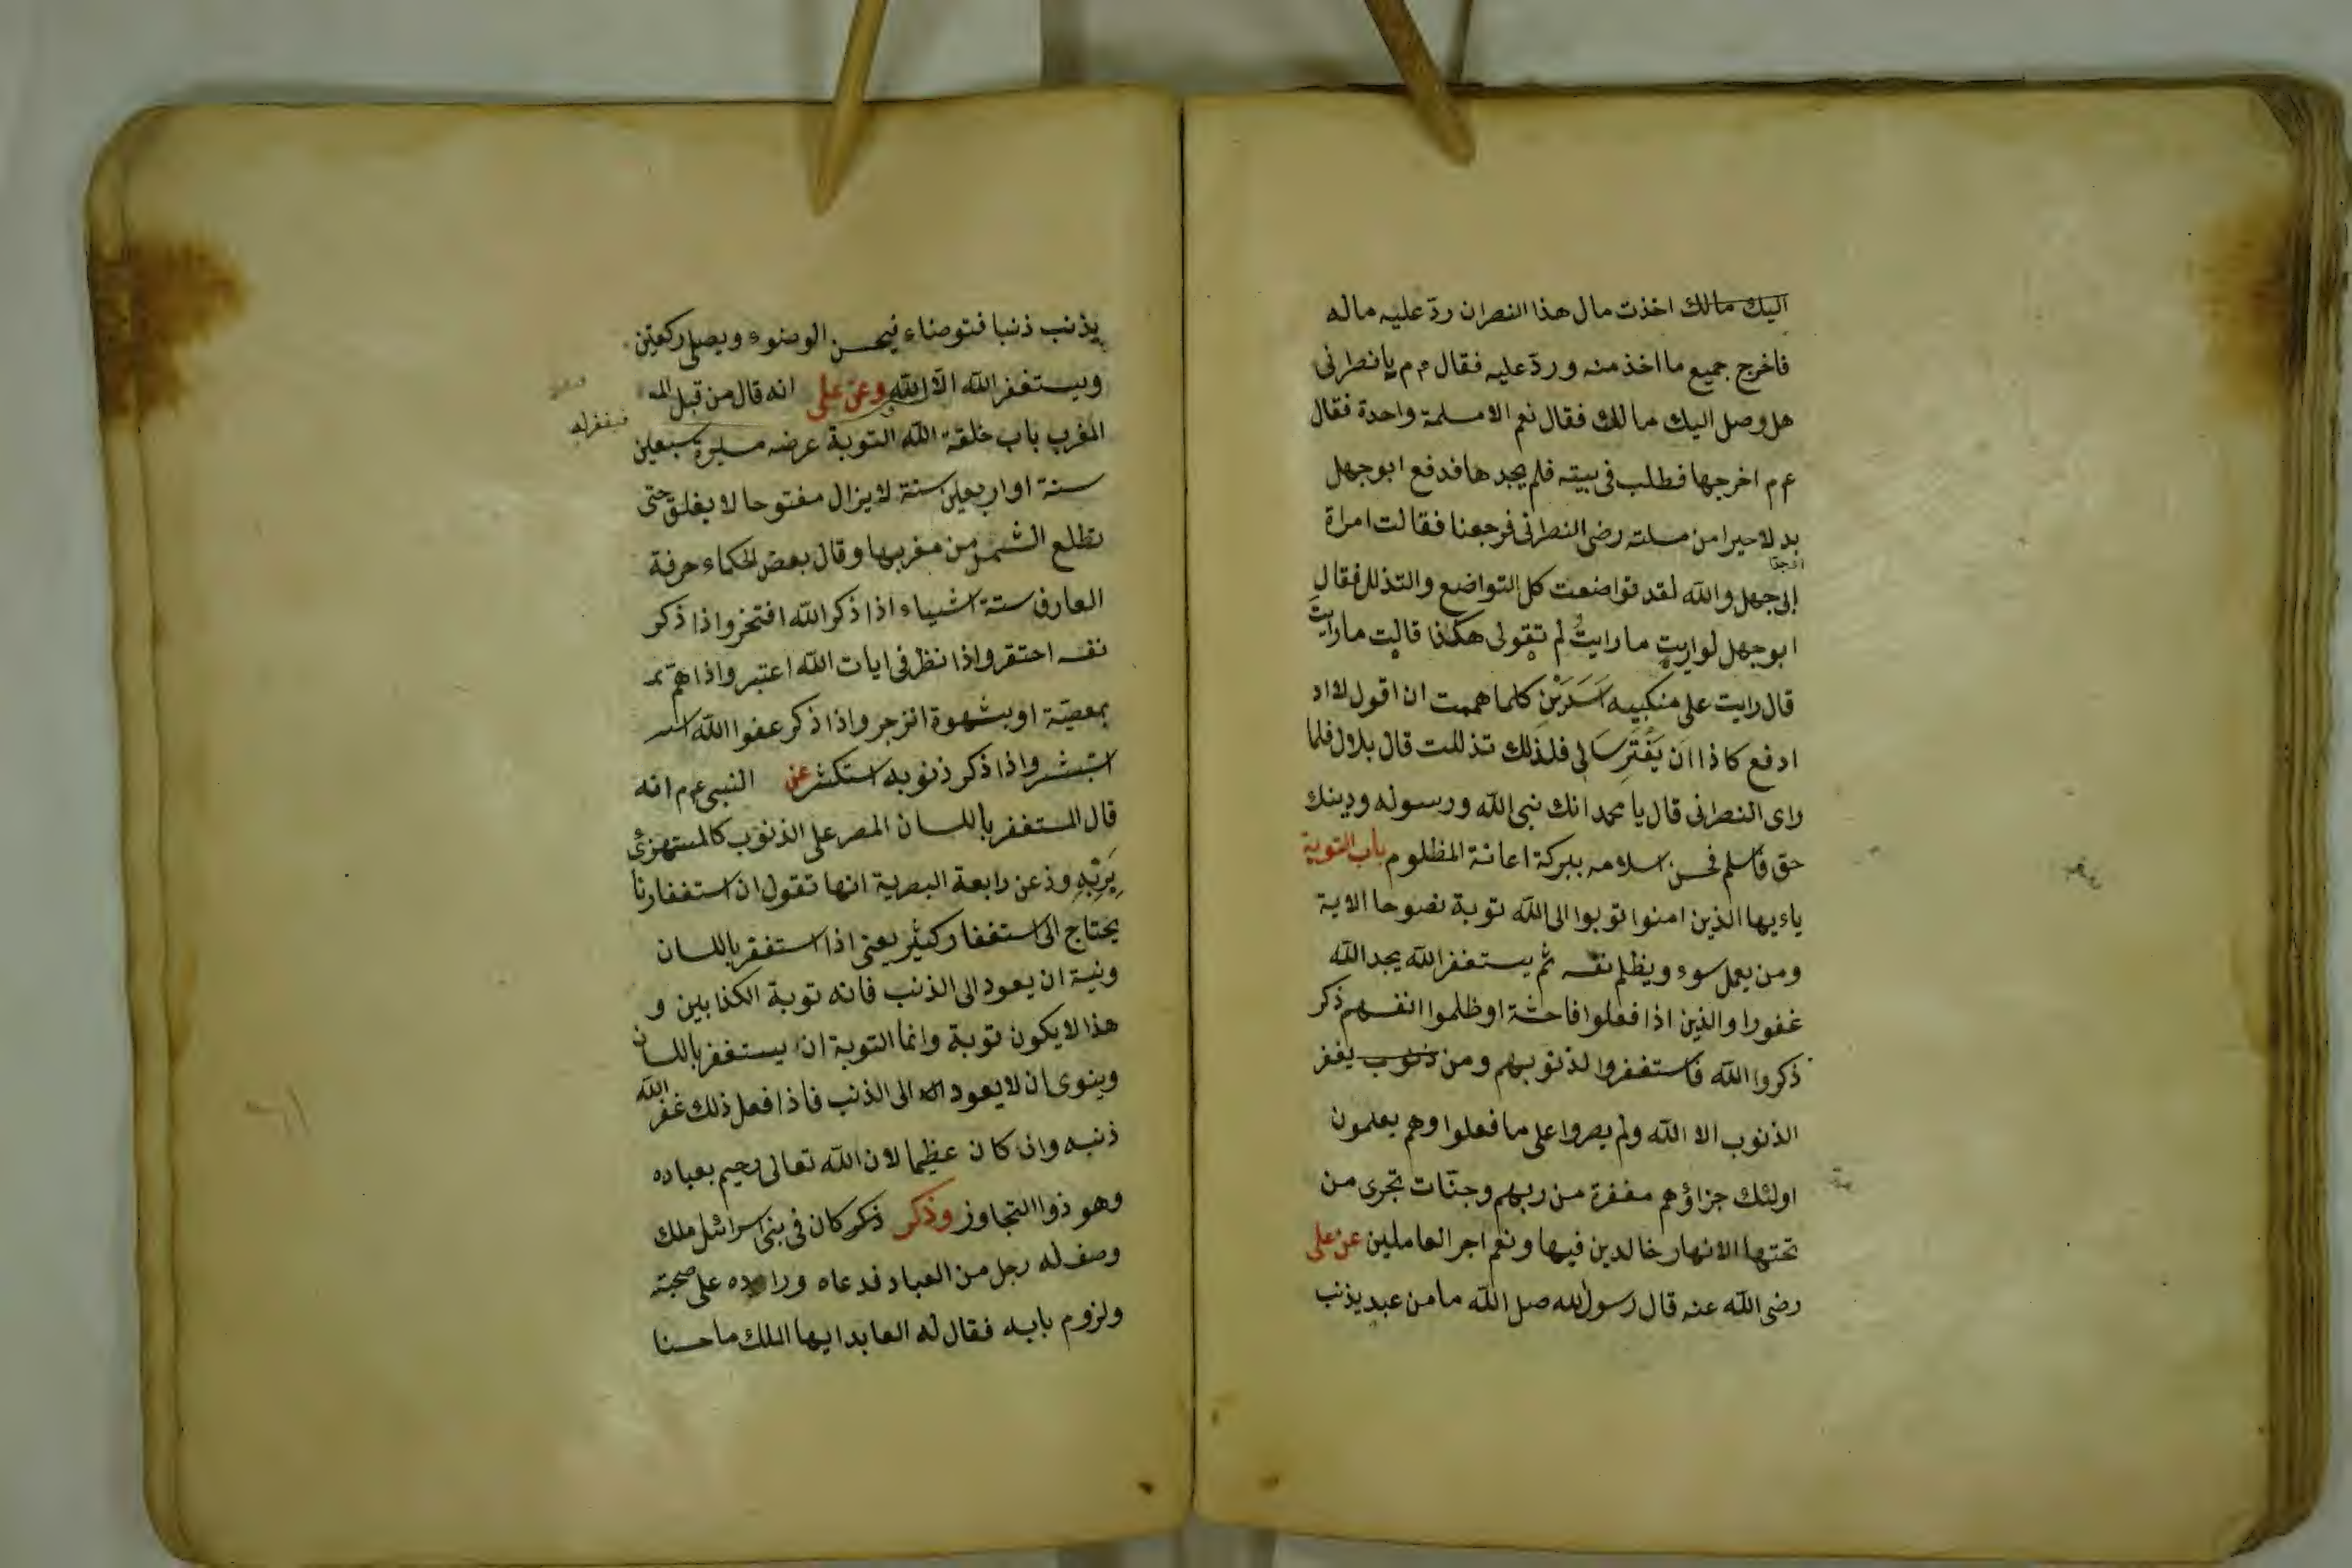 اليك مالك اخذت مال هذا النصران ردّ عليه ماله
فاخرج جميع ما اخذ منه وردّ عليه فقال ع م يا نصرانى
هل وصل اليك مالك فقال نعم الا سلمة واحدة فقال
ع م اخرجها فطلب فى بيته فلم يجدها فدفع ابو جهل
بدلا خيرا من سلته رضى النصرانى فرجعنا فقالت امراة
ابى جهل والله لقد تواضعت كل التواضع والتذلل فقال
ابو جهل لو اريت ما رايتُ لم تقولى هكذا قالت ما رايتَ
قال رايت على منكبيه اَسَدَيْنِ كلما هممت ان اقول لا اد
ادفع كاذا ان يَفْتَرِسَا لى فلذلك تذللت قال بلال فلما
راى النصرانى قال يا محمد انك نبى الله ورسوله ودينك
حق فاسلم فحسن اسلامه ببركة اعانة المظلوم باب التوبة
ياءيها الذين امنوا توبوا الى الله توبة نصوحا الاية
ومن يعمل سوء ويظلم نفسه ثم يستغفر الله يجد الله
غفورا والذين اذا فعلوا فاحشة او ظلموا انفسهم ذكر
ذكروا الله فاستغفروا لذنوبهم ومن ذنوب يغفر
الذنوب الا الله ولم يصروا على ما فعلوا وهم يعلمون
اولئك جزاؤهم مغفرة من ربهم وجنّات تجرى من
تحتها الانهار خالدين فيها ونعم اجر العاملين عن على
رضى الله عنه قال رسول الله صلى الله ما من عبد يذنب
يذنب ذنبا فتوضاء فيحسن الوضوء ويصلى ركعتين
ويستغفر الله الا الله وعن على انه قال من قبل
فيغفر له
المغرب باب خلقة الله التوبة عرضه مسيرة سبعين
سنة او اربعين سنة لا يزال مفتوحا لا يغلق حتى
تطلع الشمس من مغربها وقال بعض الحكماء حرفة
العارف ستة اشياء اذا ذكر الله افتخر واذا ذكر
نفسه احتقر واذا نظر فى ايات الله اعتبر واذا همّ
بمعصيّة او بشهوة انزجر واذا ذكر عفوا الله
استبشر واذا ذكر ذنوبه استكثر عن النبى ع م انه
قال المستغفر باللسان المصر على الذنوب كالمستهزئ
بِرَبِّهِ وذ عن رابعة البصرية انها تقول ان استغفارنا
يحتاج الى استغفار كثير يعنى اذا استغفر باللسان
ونية ان يعود الى الذنب فانه توبة الكذابين و
هذا لا يكون توبة وانما التوبة ان يستغفر باللسان
وينوى ان لا يعود الى الذنب فاذا فعل ذلك غفر الله
ذنبه وان كان عظيما لان الله تعالى رحيم بعباده
وهو ذوا التجاوز وذكر ذكر كان فى بنى اسرائل ملك
وصف له رجل من العباد فدعاه وراوده على صحبته
ولزوم بابه فقال له العابد ايها الملك ما حسنا